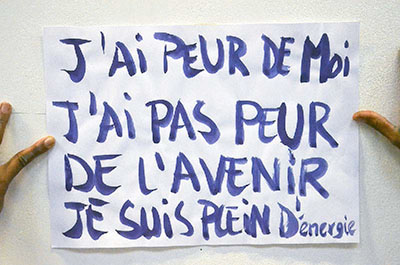 J'Ai PEUR DE Moi
J'Ai PAS PEUR
DE L'AVENIR
JE SUIS PLEIN D'énergie